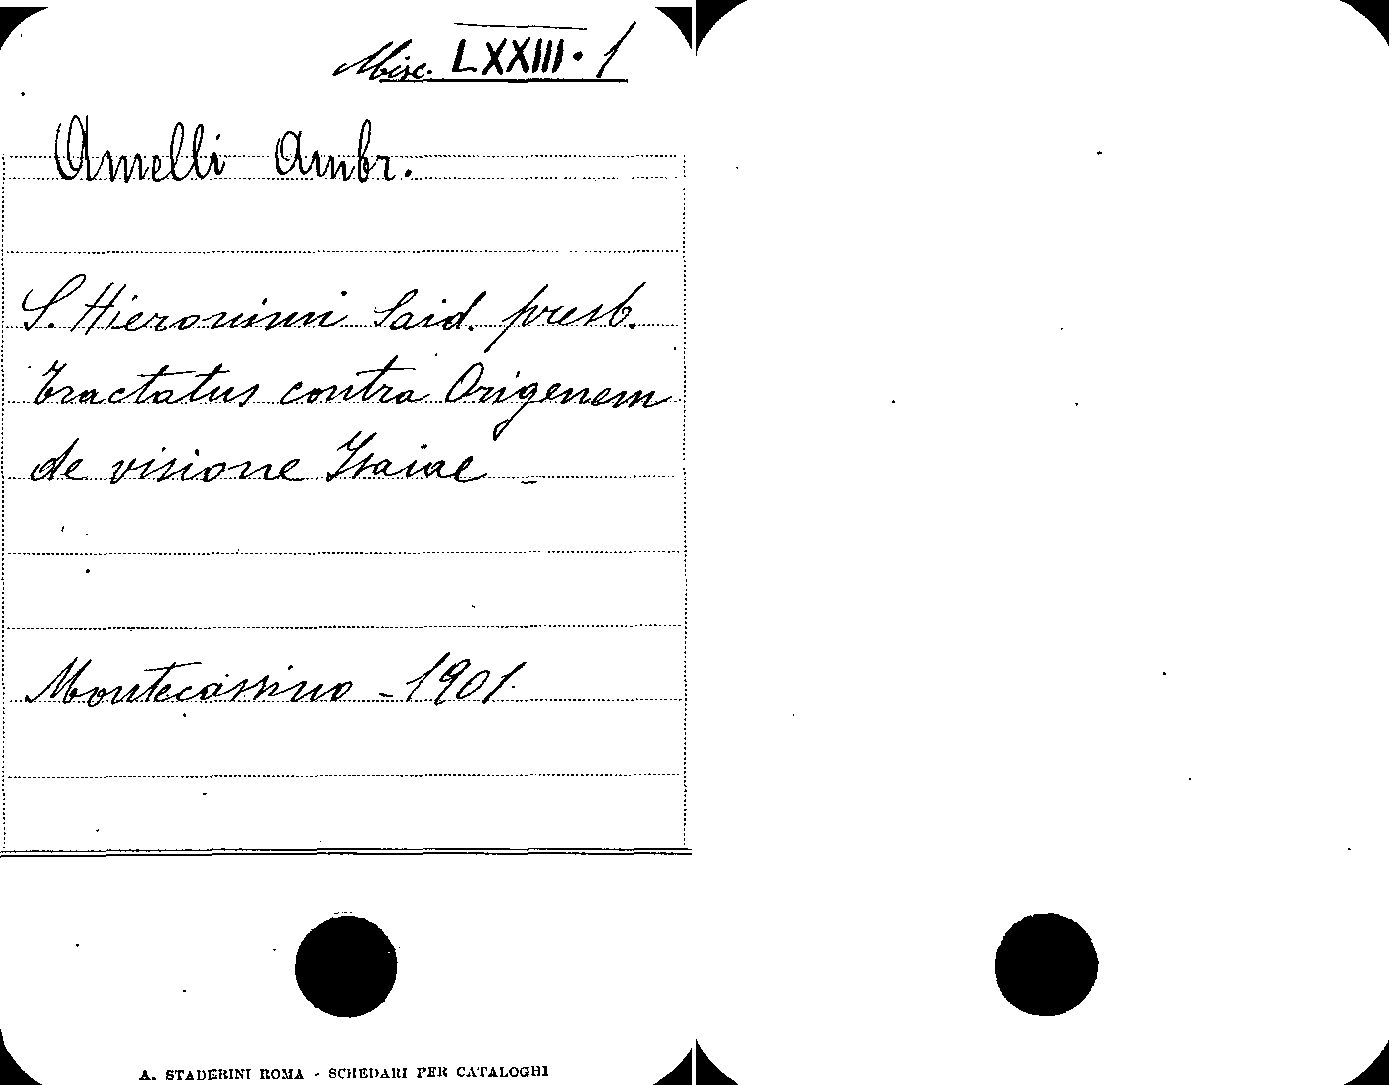 Misc. LXXIII · 1
Amelli Ambr.
S. Hieronimi Said. presb.
Tractatus contra Origenem
de visione Isaiae -
Montecassino - 1901.
A. STADERINI ROMA - SCHEDARI PER CATALOGHI